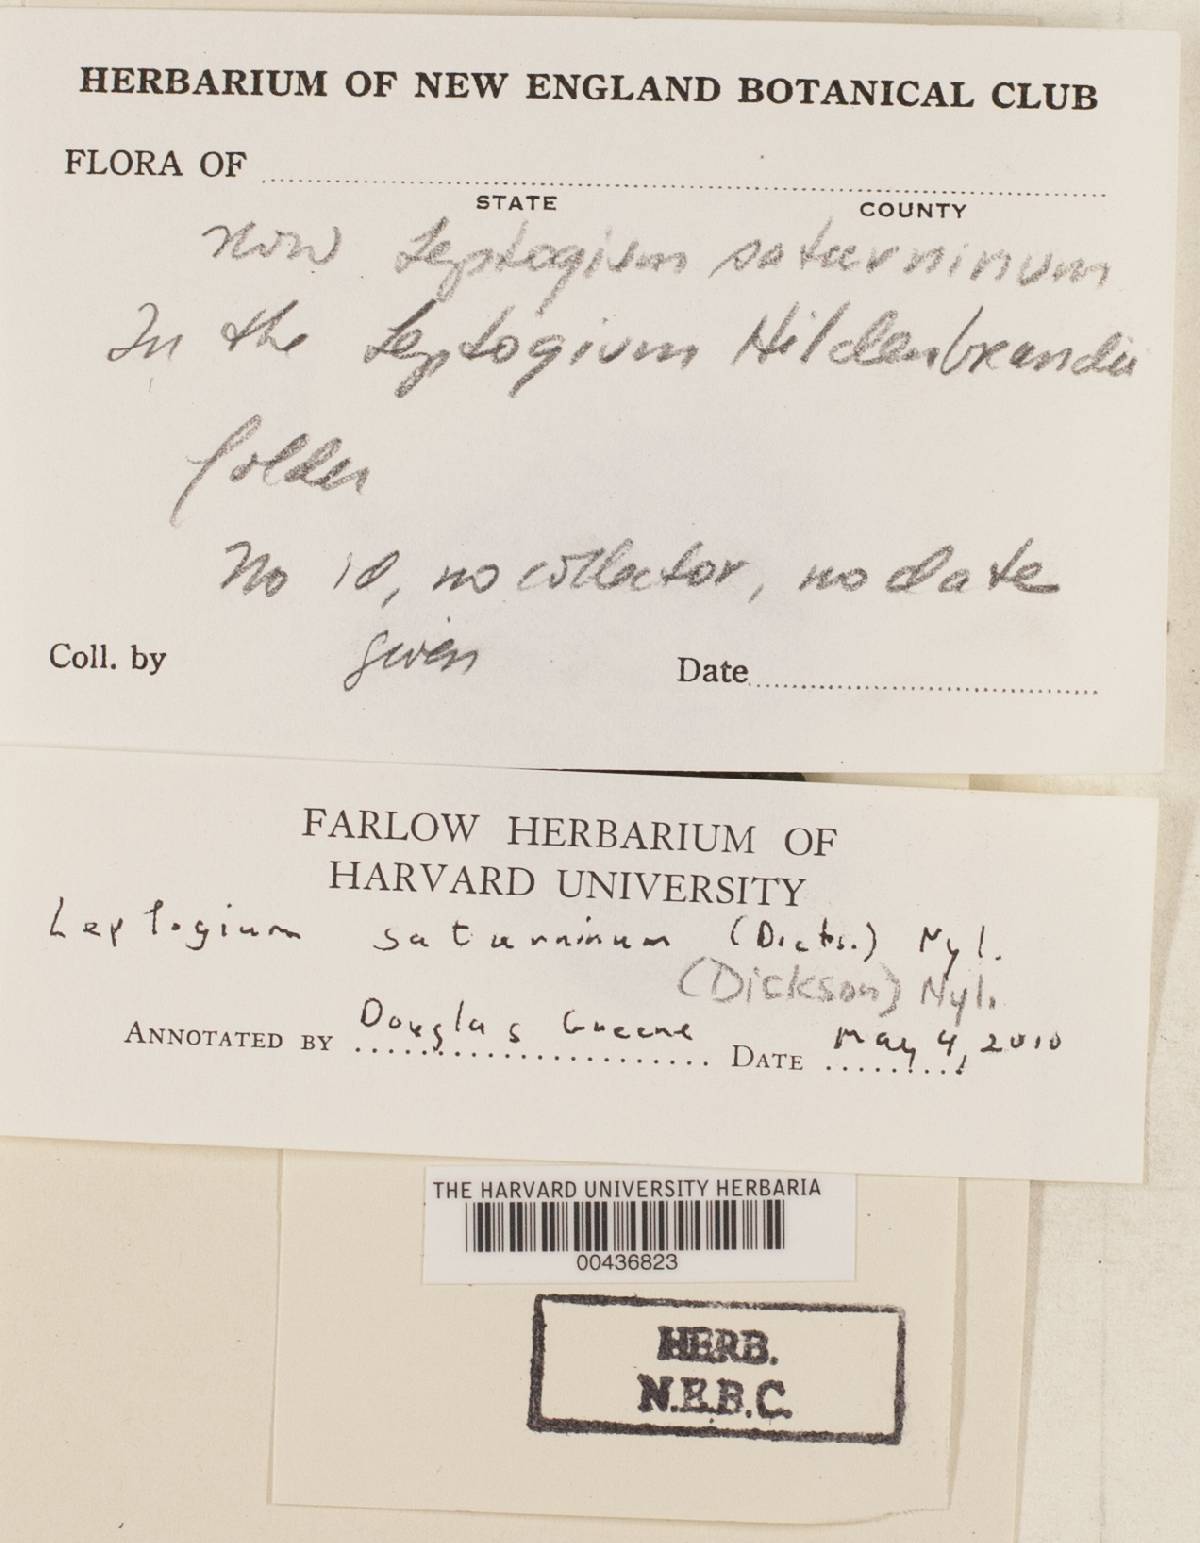 HERBARIUM OF NEW ENGLAND BOTANICAL CLUB
FLORA OF
STATE COUNTY
now Leptogium saturninum
In the Leptogium Hildenbrandii
folder
No id, no collector, no date
given
Coll. by Date
FARLOW HERBARIUM OF
HARVARD UNIVERSITY
Leptogium saturninum (Dicks.) Nyl.
(Dickson) Nyl.
ANNOTATED BY Douglas Greene DATE May 4, 2010
THE HARVARD UNIVERSITY HERBARIA
00436823
HERB.
N.E.B.C.